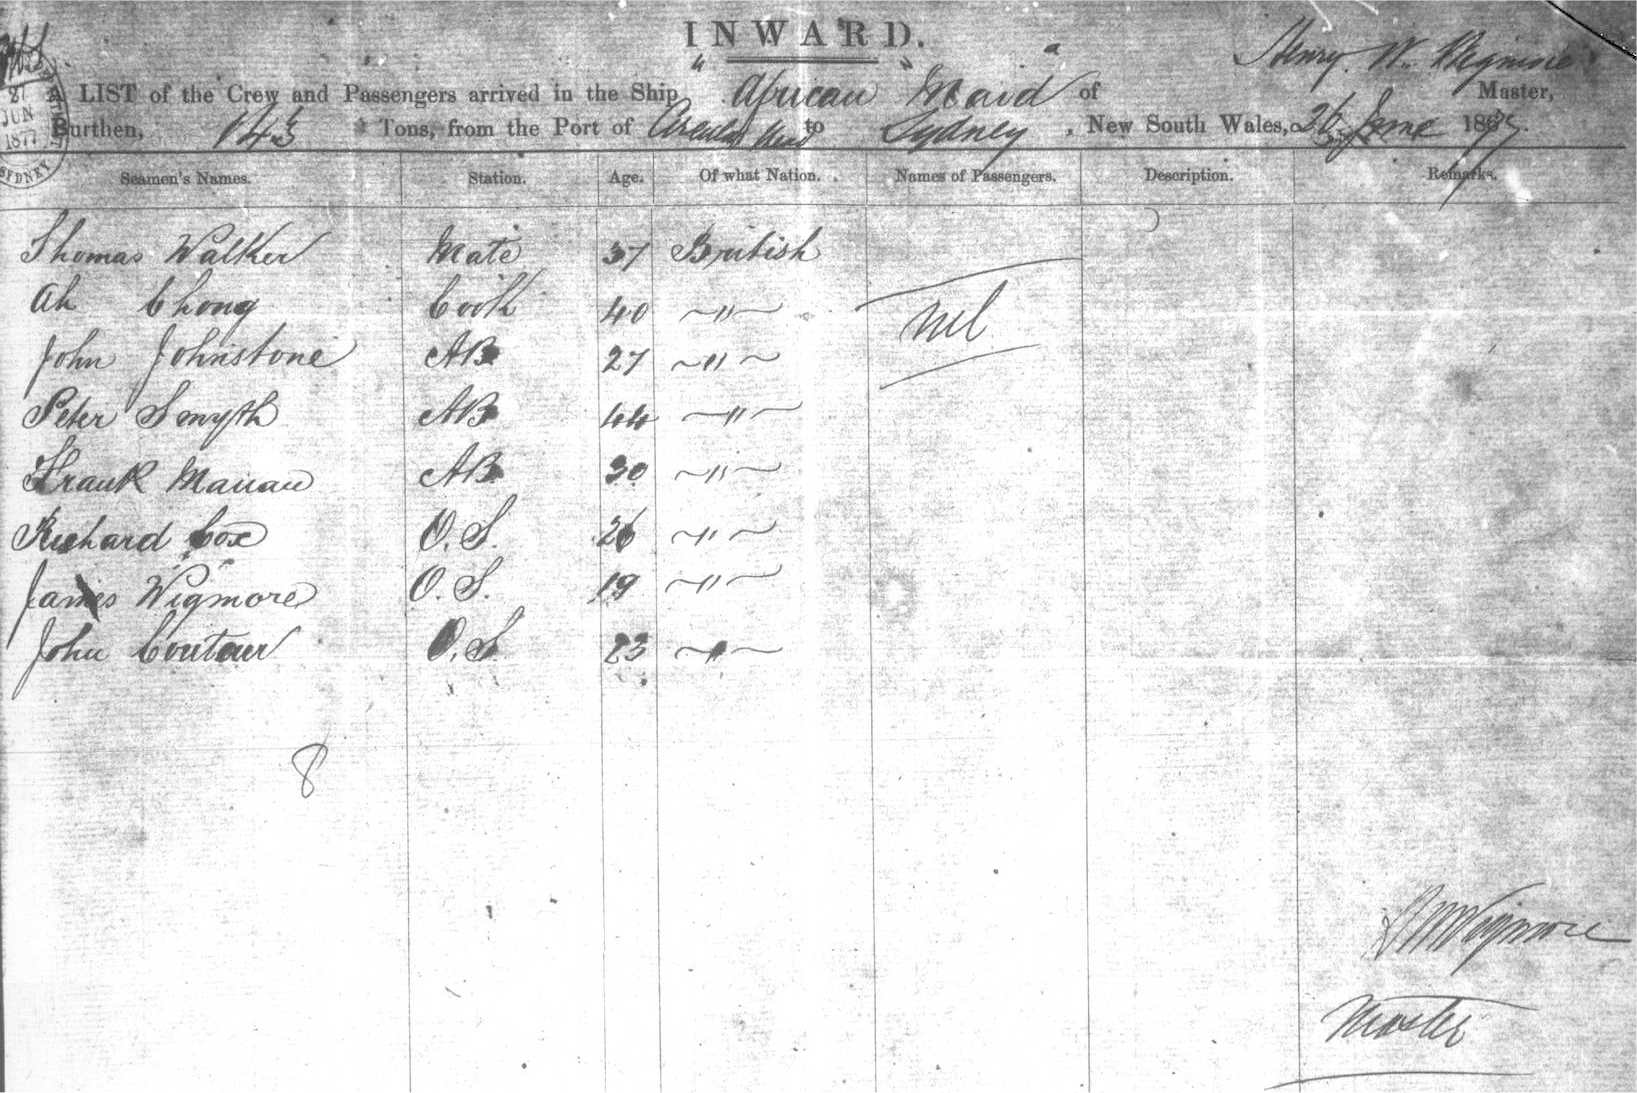 INWARD.
Henry. W. Wigmore
LIST of the Crew and Passengers arrived in the Ship "African Maid" of Master,
Burthen, 143 Tons, from the Port of Circular Head to Sydney, New South Wales, 26 June 1877.
27
JUN
1877
SYDNEY
Seamen's Names. Station. Age. Of what Nation. Names of Passengers. Description. Remarks.
Thomas Walker Mate 37 British
Ah Chong Cook 40 "
nil
John Johnstone AB 27 "
Peter Smyth AB 44 "
Frank AB 30 "
Richard Cox O.S. 26 "
James Wigmore O.S. 19 "
John O.S. 23 "
8
HWWigmore
Master